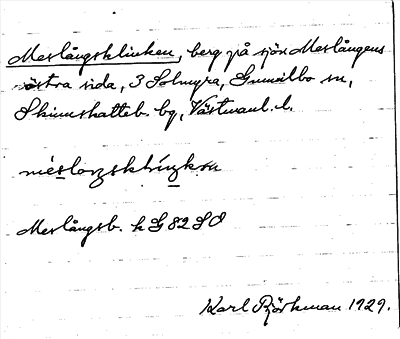 Meslångsklinken, berg på sjön Meslångens
östra sida, 3 Solmyra, Gunnilbo sn,
Skinnskatteb. bg, Västmanl. l.
Meslångsb. k G 82 S O
Karl Björkman 1929.